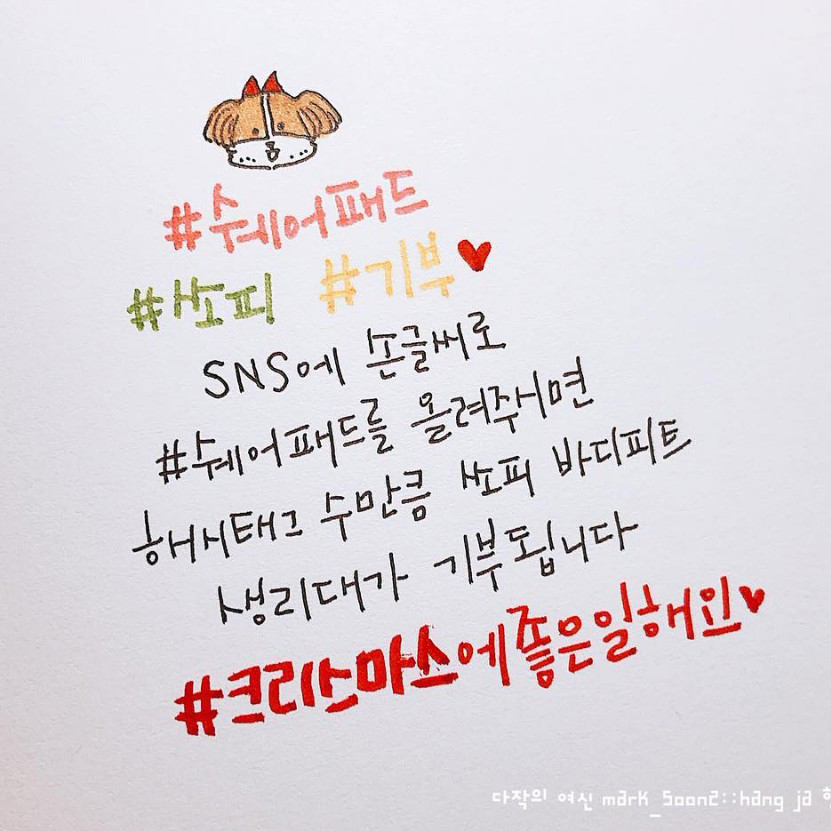 #쉐어패드
#쏘피 #기부♥
SNS에 손글씨로
#쉐어패드를 올려주시면
해시태그 수만큼 쏘피 바디피트
생리대가 기부됩니다
#크리스마스에좋은일해인♥
다작의 여신 mark_soon2::hang ja